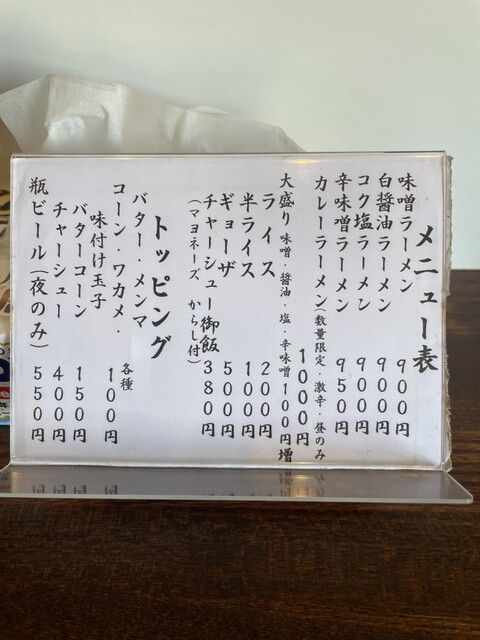 メニュー表
味噌ラーメン 900円
白醤油ラーメン 900円
コク塩ラーメン 900円
辛味噌ラーメン 950円
カレーラーメン(数量限定・激辛・昼のみ)
1000円
大盛り 味噌・醤油・塩・辛味噌100円増
ライス 200円
半ライス 100円
ギョーザ 500円
チャーシュー御飯 380円
(マヨネーズ、からし付)
トッピング
バター・メンマ
コーン・ワカメ・
味付け玉子 各種 100円
バターコーン 150円
チャーシュー 400円
瓶ビール(夜のみ) 550円